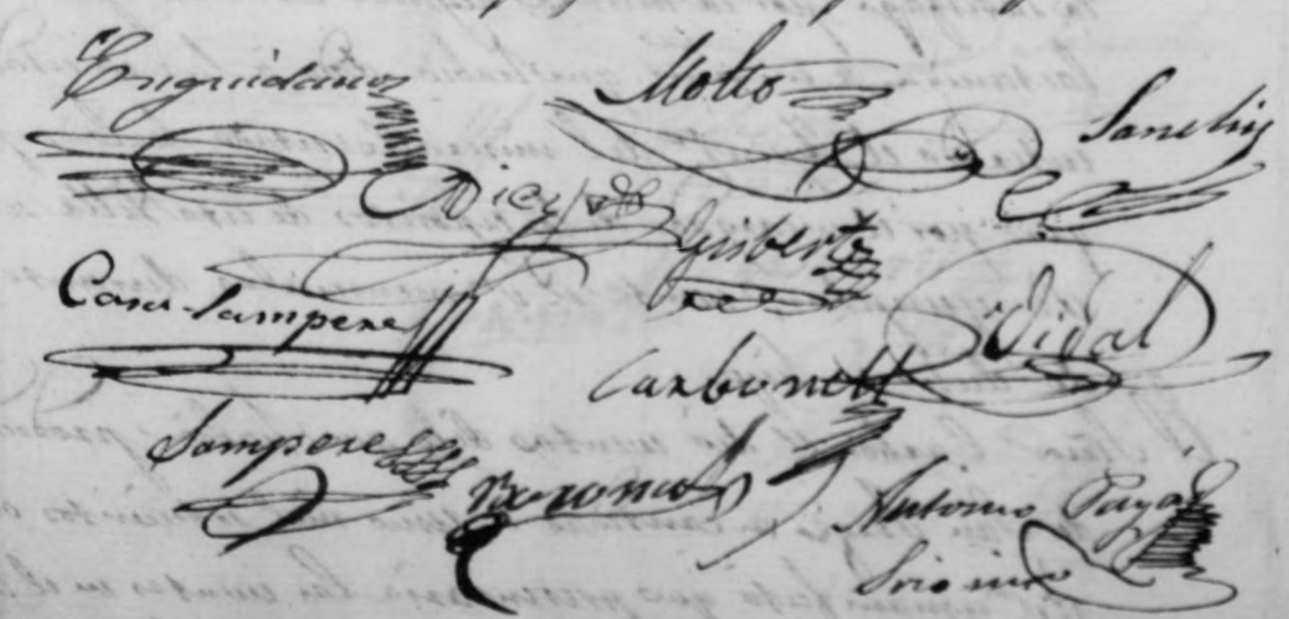 Enguidanos
Motto
Sanchiz
Diez
Gisbert
Casa-Sempere
Vidal
Carbonell
Sempere
Antonio Payá
Srio int